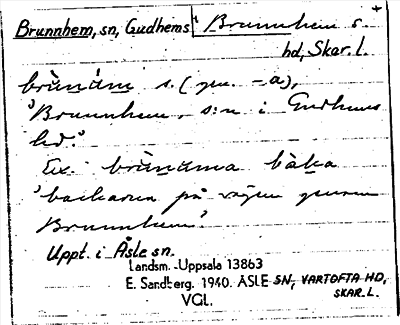 Brunnhem, sn, Gudhems Brunnhem s.
hd, Skar. l.
brùnám s. (gen. -a),
"Brunnhem, s:n i Gudhems
hd."
Ex. brùnáma bàka
"backarna på vägen genom
Brunnhem".
Uppt. i Åsle sn.
Landsm. Uppsala 13863
E. Sandberg. 1940. ÅSLE SN, VARTOFTA HD,
SKAR. L.
VGL.